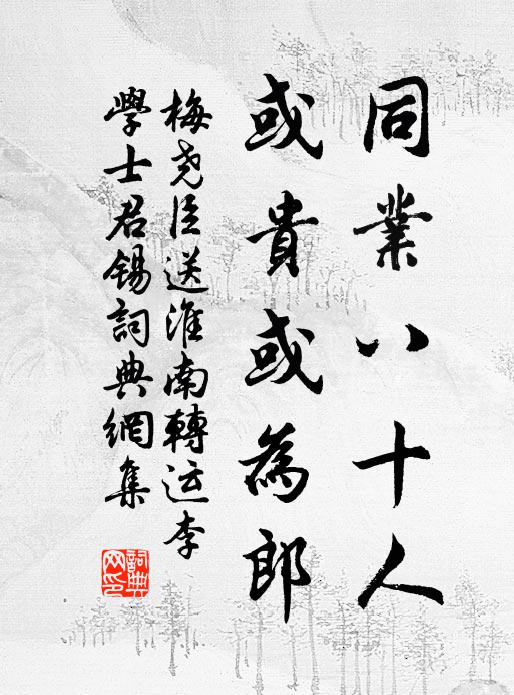 同業八十人
或貴或為郎
梅堯臣送淮南轉运李
學士君錫詞典網集
詞典网印